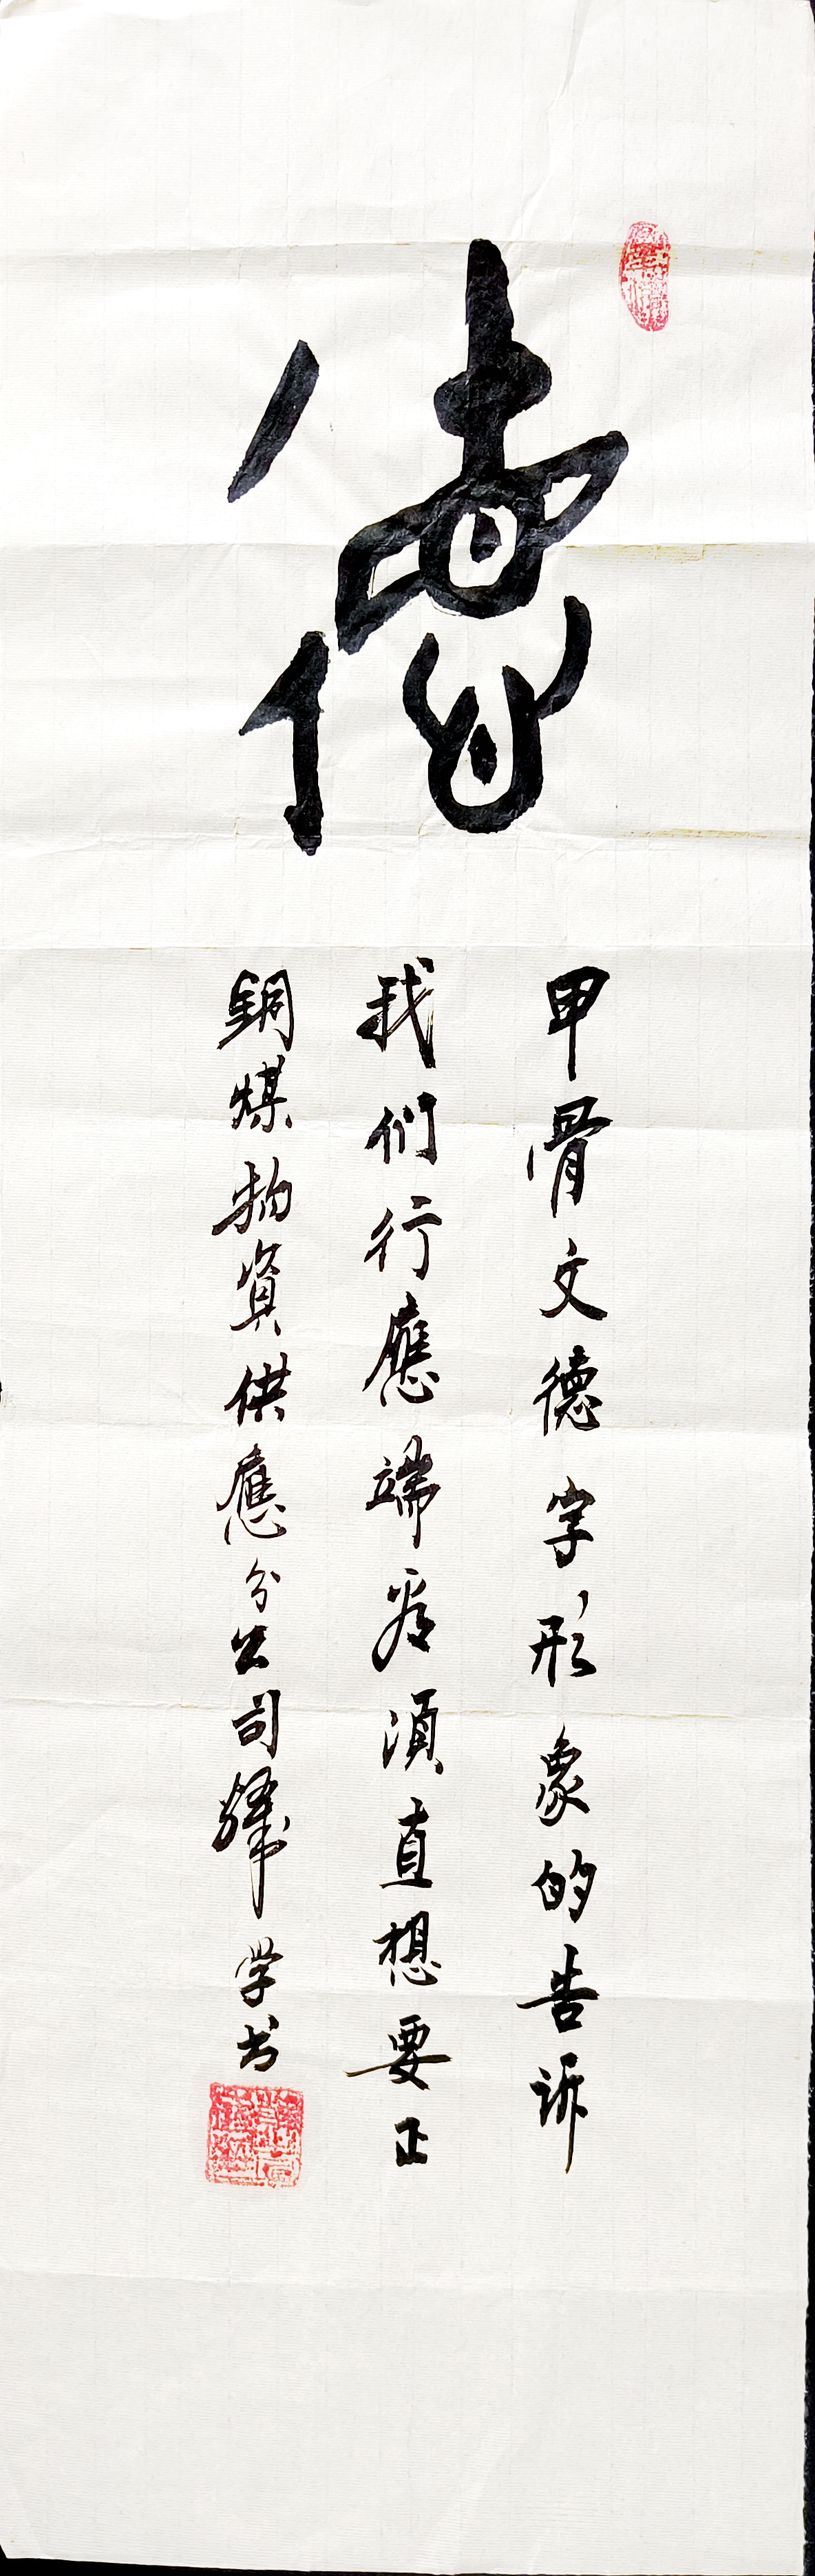 德
甲骨文德字,形象的告诉
我们行應端看須直想要正
銅煤物資供應分公司学书